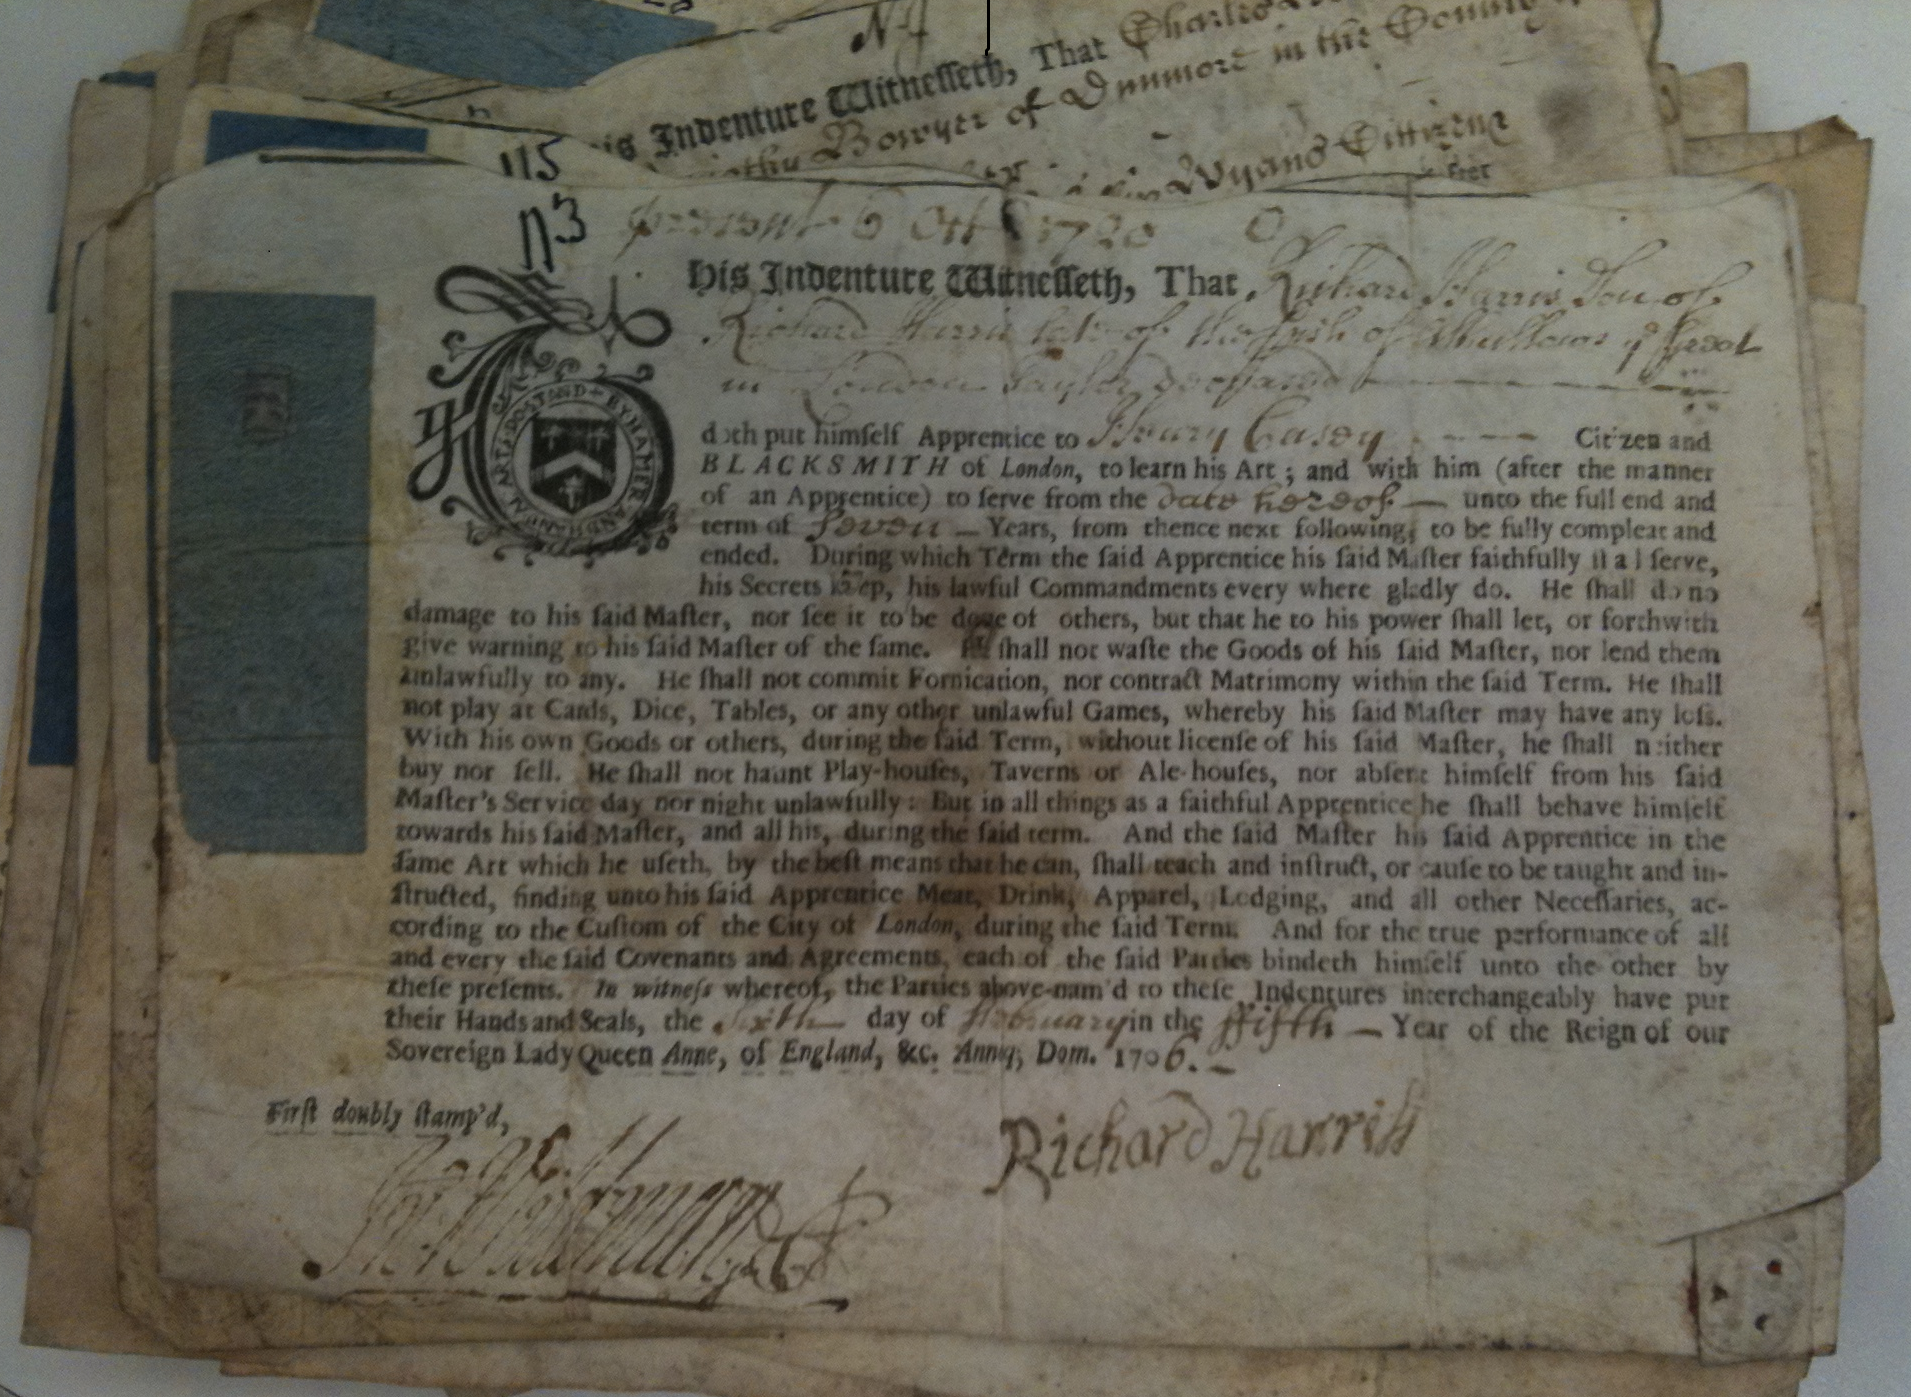 N4
This Indenture Witnesseth, That Charles
Bowyer of Dunmore in the County of
Wyans Cittizen
115
113
1720
His Indenture Witnesseth, That Richard Harris Son of
Richard Harris late of the of Allhallows ye Great
in London Taylor deceased
BY HAMER AND HAND AL ARTS DO STAND
doth put himself Apprentice to Henry Casey Citizen and
BLACKSMITH of London, to learn his Art; and with him (after the manner
of an Apprentice) to ſerve from the date hereof — unto the full end and
term of Seven — Years, from thence next following, to be fully compleat and
ended. During which Term the ſaid Apprentice his ſaid Maſter faithfully ſhall ſerve,
his Secrets keep, his lawful Commandments every where gladly do. He ſhall do no
damage to his ſaid Maſter, nor ſee it to be done of others, but that he to his power ſhall let, or forthwith
give warning to his ſaid Maſter of the ſame. He ſhall not waſte the Goods of his ſaid Maſter, nor lend them
unlawfully to any. He ſhall not commit Fornication, nor contract Matrimony within the ſaid Term. He ſhall
not play at Cards, Dice, Tables, or any other unlawful Games, whereby his ſaid Maſter may have any loſs.
With his own Goods or others, during the ſaid Term, without licenſe of his ſaid Maſter, he ſhall neither
buy nor ſell. He ſhall not haunt Play-houſes, Taverns or Ale-houſes, nor abſent himſelf from his ſaid
Maſter's Service day nor night unlawfully: But in all things as a faithful Apprentice he ſhall behave himſelf
towards his ſaid Maſter, and all his, during the ſaid term. And the ſaid Maſter his ſaid Apprentice in the
ſame Art which he uſeth, by the beſt means that he can, ſhall teach and inſtruct, or cauſe to be taught and in-
ſtructed, finding unto his ſaid Apprentice Meat, Drink, Apparel, Lodging, and all other Neceſſaries, ac-
cording to the Cuſtom of the City of London, during the ſaid Term. And for the true performance of all
and every the ſaid Covenants and Agreements, each of the ſaid Parties bindeth himſelf unto the other by
theſe preſents. In witneſs whereof, the Parties above-nam'd to theſe Indentures interchangeably have put
their Hands and Seals, the Sixth — day of February in the ffifth — Year of the Reign of our
Sovereign Lady Queen Anne, of England, &c. Annoq; Dom. 1706.
Firſt doubly ſtamp'd,
Richard Harris